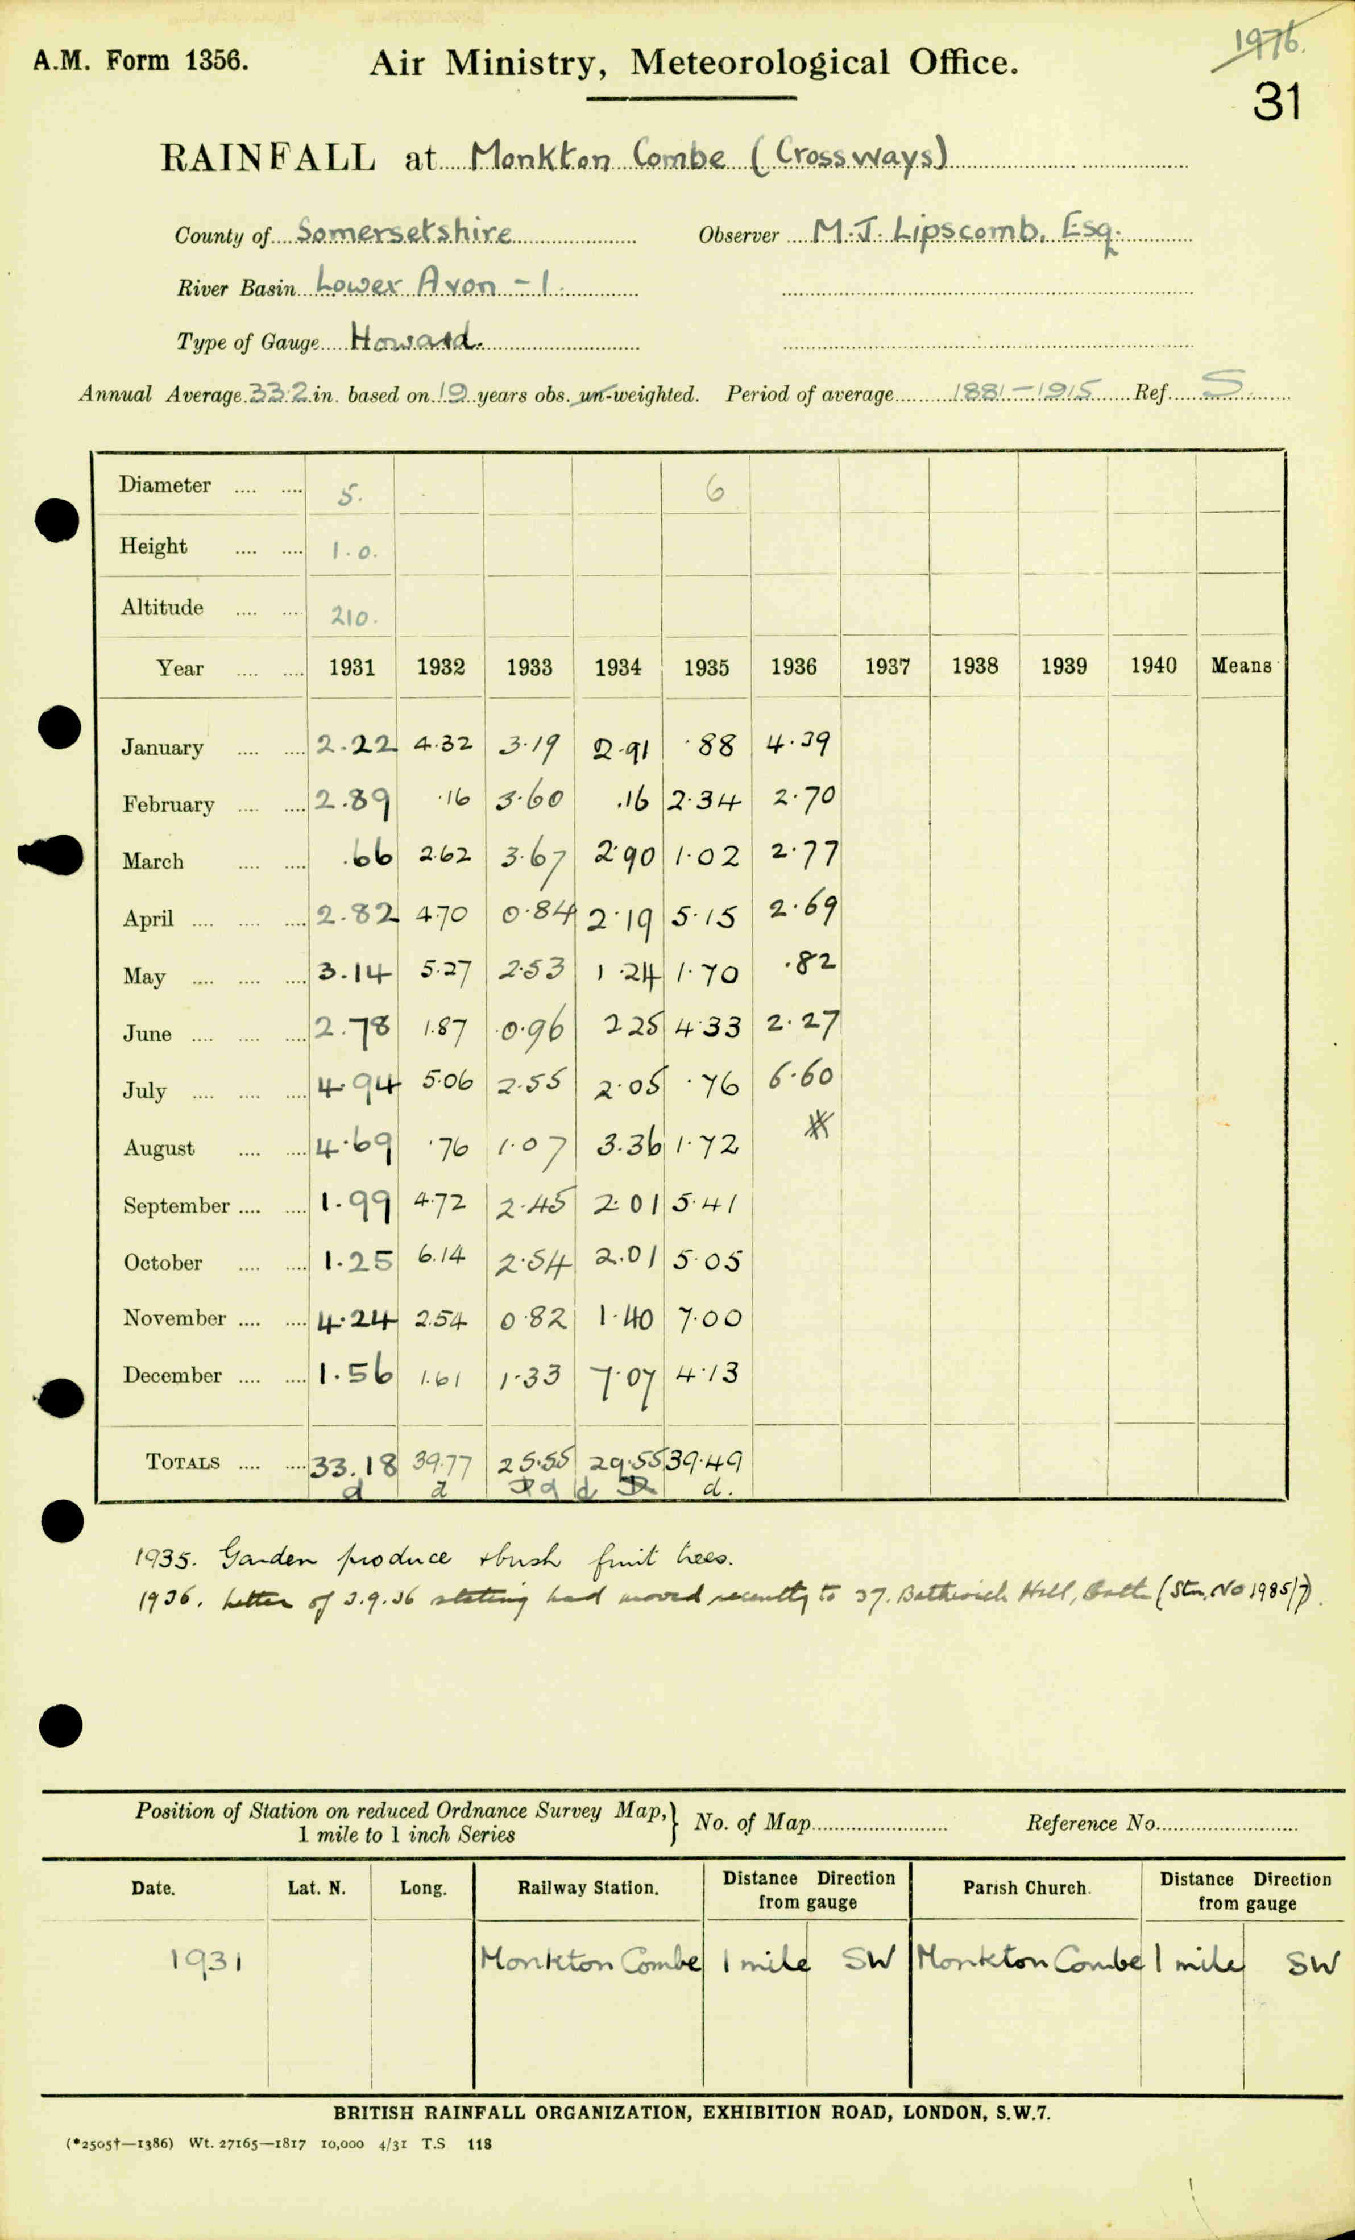 1976.
A.M. Form 1356. Air Ministry, Meteorological Office.
31
RAINFALL at Monkton Combe (Crossways)
County of Somersetshire Observer M.J. Lipscomb, Esq.
River Basin Lower Avon - 1.
Type of Gauge Howard.
Annual Average 33.2 in. based on 19 years obs. un-weighted. Period of average 1881-1915 Ref. S.
Diameter .... .... 5. 6
Height .... .... 1.0.
Altitude .... .... 210.
Year .... .... 1931 1932 1933 1934 1935 1936 1937 1938 1939 1940 Means
January .... .... 2.22 4.32 3.19 2.91 .88 4.39
February .... .... 2.89 .16 3.60 .16 2.34 2.70
March .... .... .66 2.62 3.67 2.90 1.02 2.77
April .... .... .... 2.82 4.70 0.84 2.19 5.15 2.69
May .... .... .... 3.14 5.27 2.53 1.24 1.70 .82
June .... .... .... 2.78 1.87 0.96 2.25 4.33 2.27
July .... .... .... 4.94 5.06 2.55 2.05 .76 6.60
August .... .... 4.69 .76 1.07 3.36 1.72
September .... .... 1.99 4.72 2.45 2.01 5.41
October .... .... 1.25 6.14 2.54 2.01 5.05
November .... .... 4.24 2.54 0.82 1.40 7.00
December .... .... 1.56 1.61 1.33 7.07 4.13
TOTALS .... .... 33.18 39.77 25.55 29.55 39.49
d d d d d.
1935. Garden produce & bush fruit trees.
1936. Letter of 3.9.36 stating had moved recently to 37. Bathwick Hill, Bath (Stn. No 1985/7).
Position of Station on reduced Ordnance Survey Map,} No. of Map Reference No.
1 mile to 1 inch Series
Date. Lat. N. Long. Railway Station. Distance Direction from gauge Parish Church. Distance Direction from gauge
1931 Monkton Combe 1 mile SW Monkton Combe 1 mile SW
BRITISH RAINFALL ORGANIZATION, EXHIBITION ROAD, LONDON, S.W.7.
(*2505†—1386) Wt. 27165—1817 10,000 4/31 T.S 118